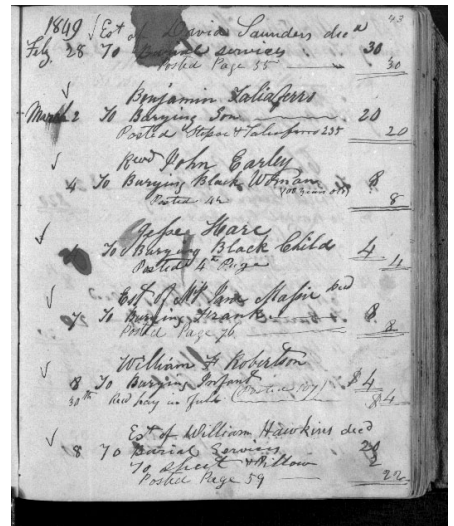 43
1849 Est of David Saunders decd
Feby 28 To Burial services 30
Posted Page 55 30
Benjamin Taliaferro
March 2 To Burying Son 20
Posted 20
Revd John Earley
4 To Burying Black Woman 8
Posted 42 8
Jesse Hare
To Burying Black Childs 4
Posted 4th Page 4
Est of Mrs Jane decd
7 To Burying Frank 8
Posted Page 76 8
William H Robertson
8 To Burying Infant $4
30th Recd pay in full (Posted 107) $4
Est of William Hawkins decd
8 To Burial Services 20
To sheet & Pillow 2
Posted Page 59 22